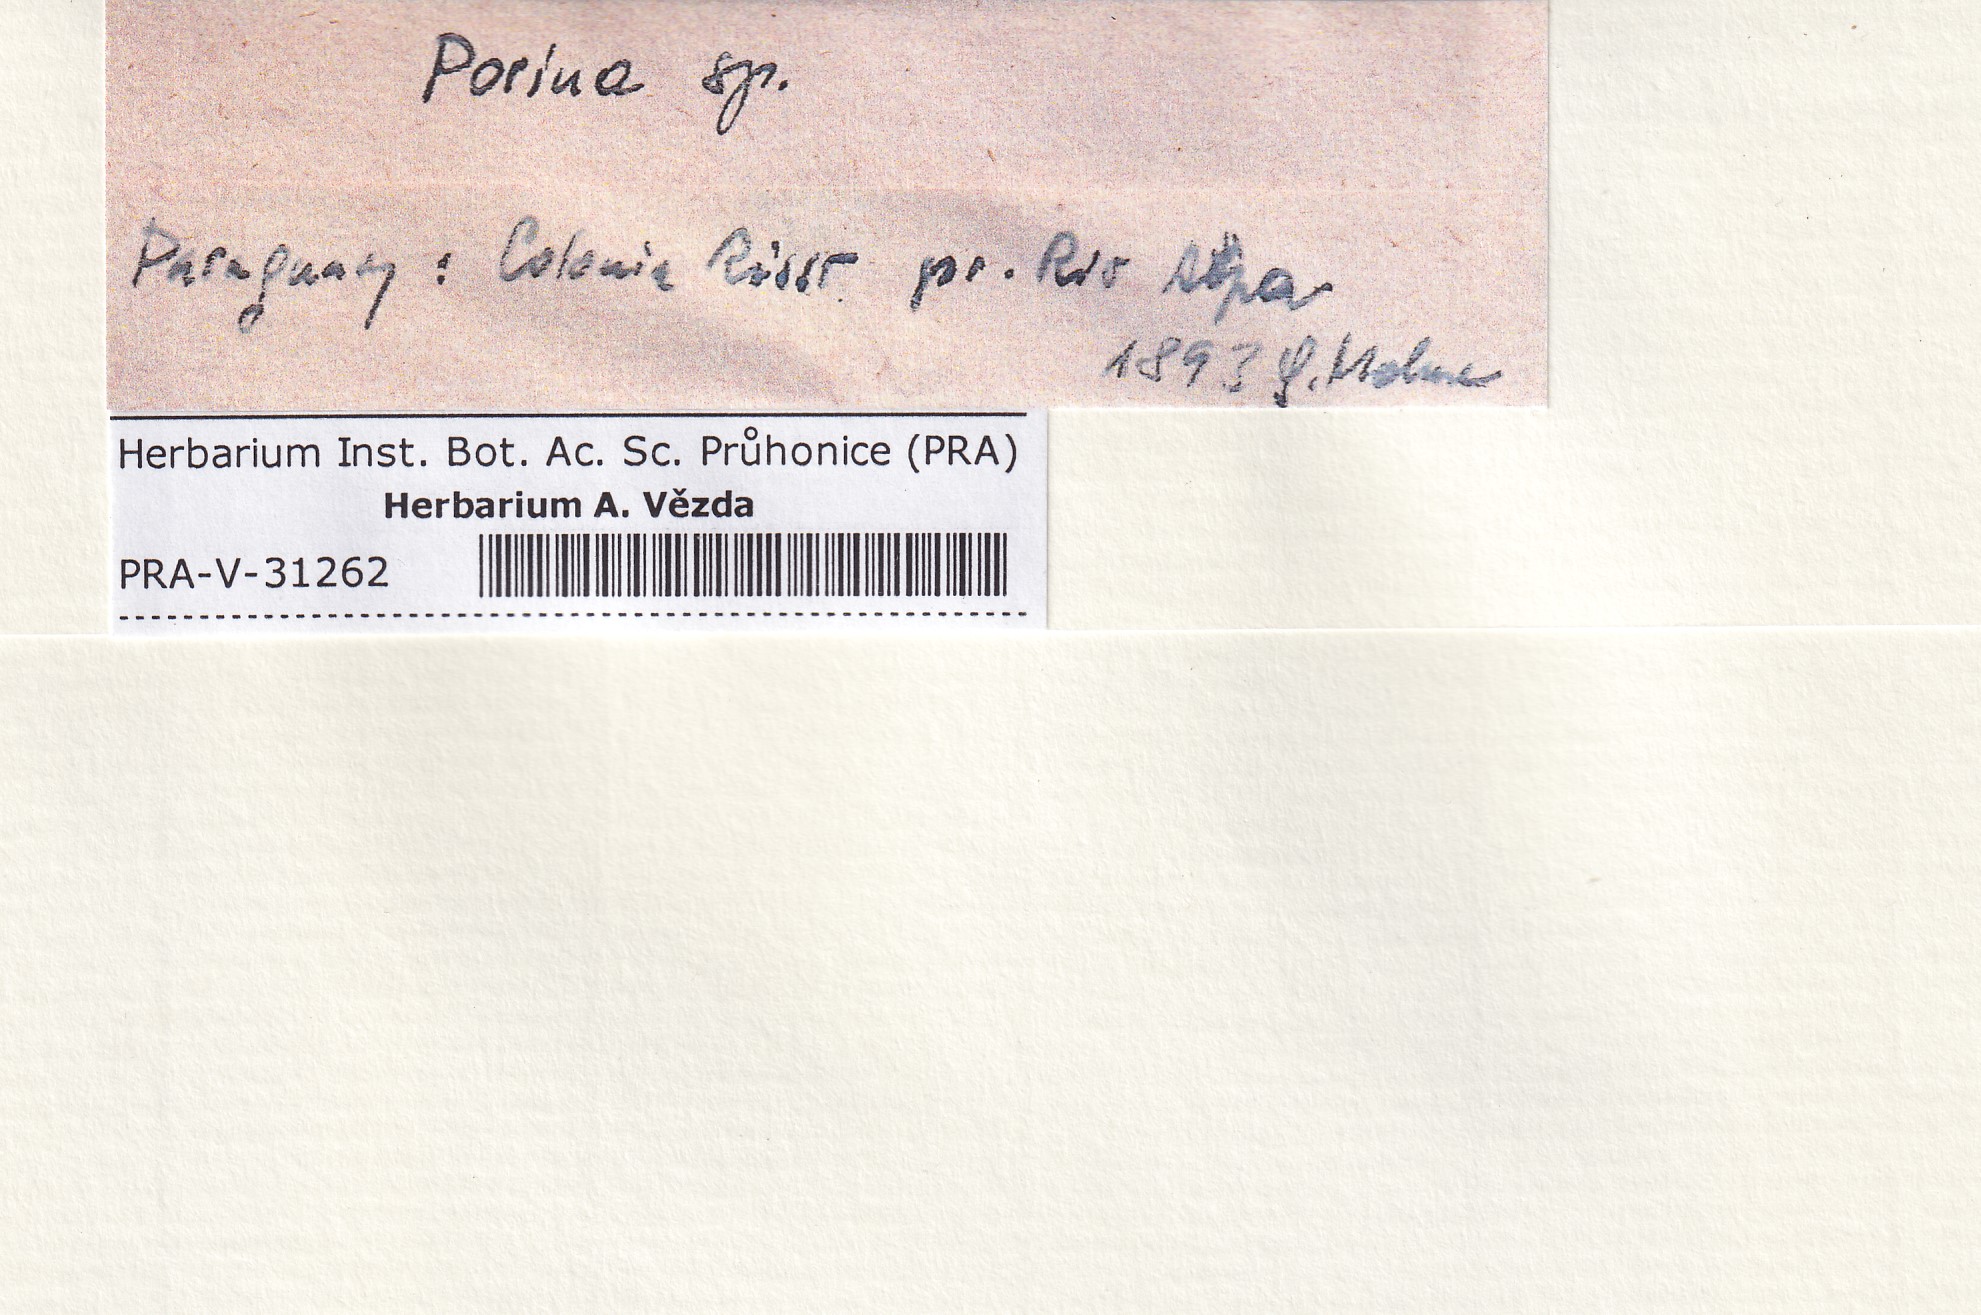 Porina sp.
Paraguay: Colonia Risso pr. Rio Apa
1893 G. Malme
Herbarium Inst. Bot. Ac. Sc. Průhonice (PRA)
Herbarium A. Vězda
PRA-V-31262